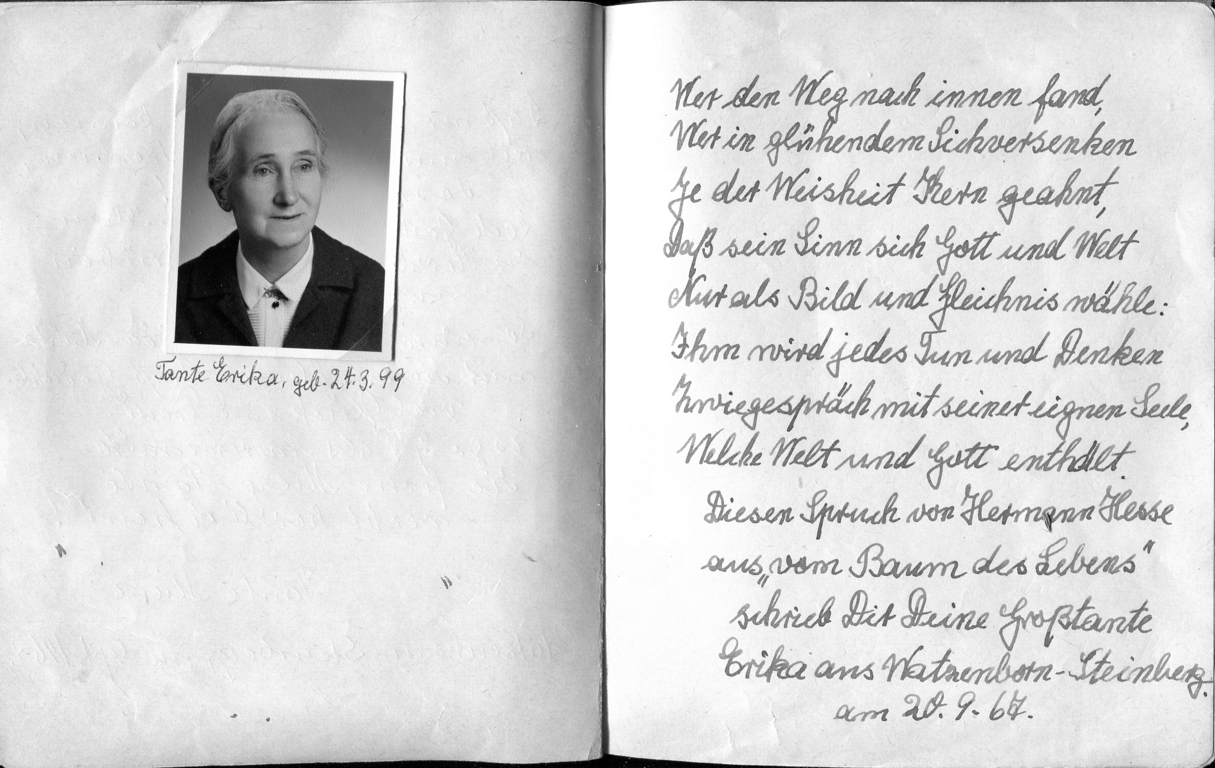 Tante Erika, geb. 24.3.99
Wer den Weg nach innen fand,
Wer in glühendem Sichversenken
Je der Weisheit Kern geahnt,
Daß sein Sinn sich Gott und Welt
Nur als Bild und Gleichnis wähle:
Ihm wird jedes Tun und Denken
Zwiegespräch mit seiner eignen Seele,
Welche Welt und Gott enthält.
Diesen Spruch von Hermann Hesse
aus „vom Baum des Lebens"
schrieb Dir Deine Großtante
Erika aus Watzenborn-Steinberg.
am 20.9.67.